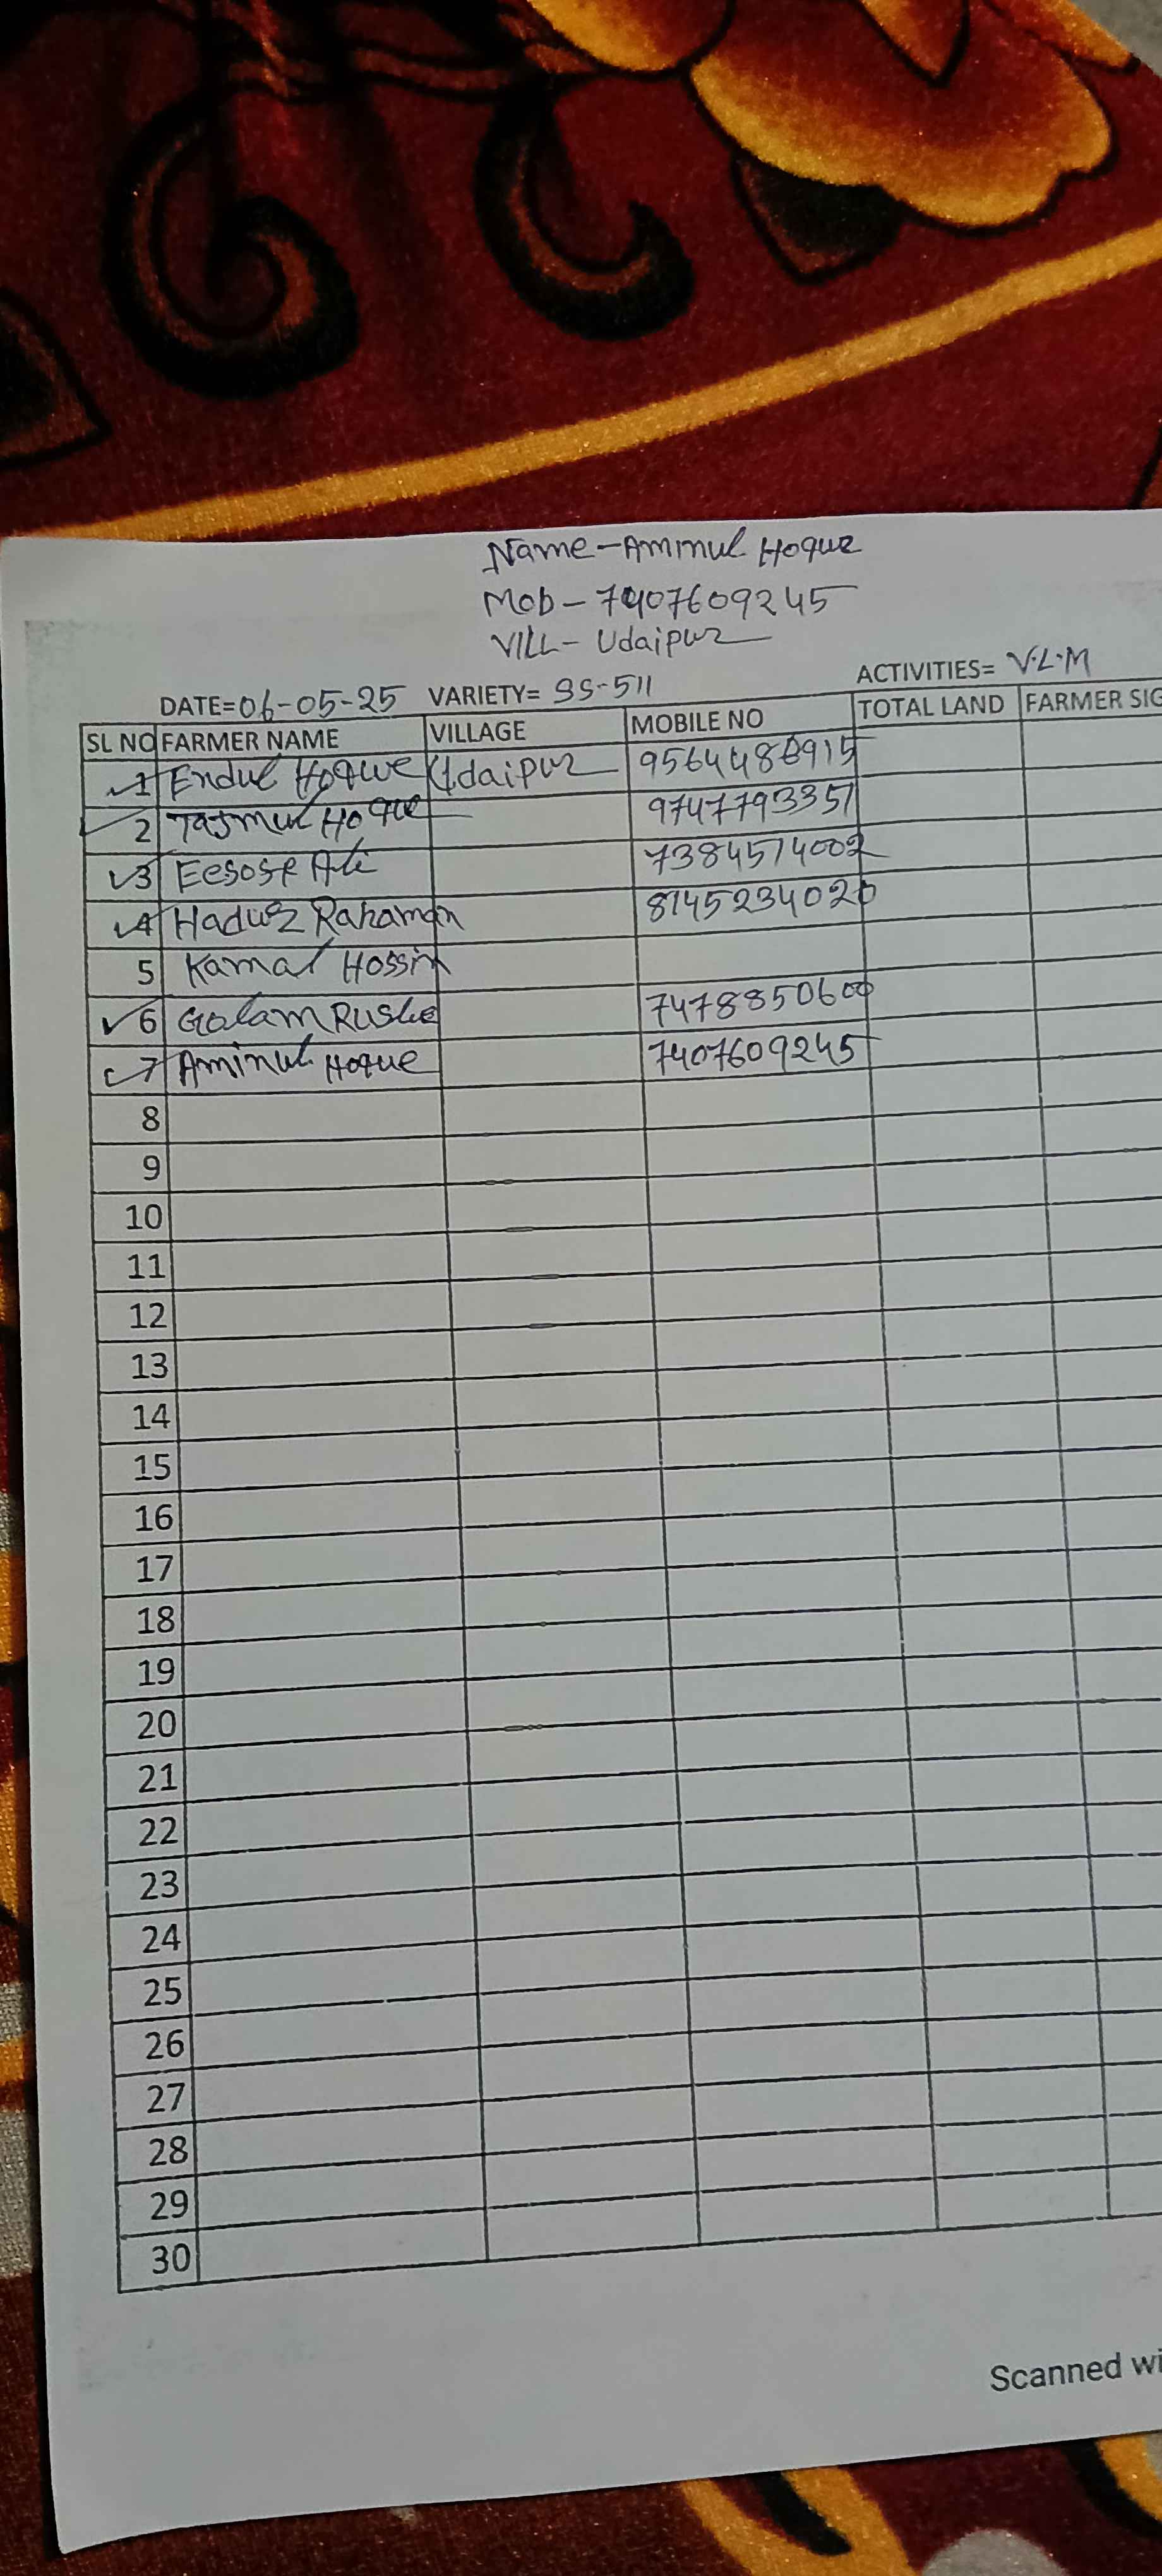 Name-Aminul Hoque
Mob-7407609245
VILL-Udaipur
DATE=06-05-25 VARIETY= SS-511 ACTIVITIES= V.L.M
SL NO FARMER NAME VILLAGE MOBILE NO TOTAL LAND FARMER SIG
1 Endul Hoque Udaipur 9564486915
2 Tajmul Hoque 9747793351
3 Eesose Ali 7384574002
4 Haduz Rahaman 8145234020
5 Kamal Hossin
6 Golam 7478850600
7 Aminul Hoque 7407609245
8
9
10
11
12
13
14
15
16
17
18
19
20
21
22
23
24
25
26
27
28
29
30
Scanned wi